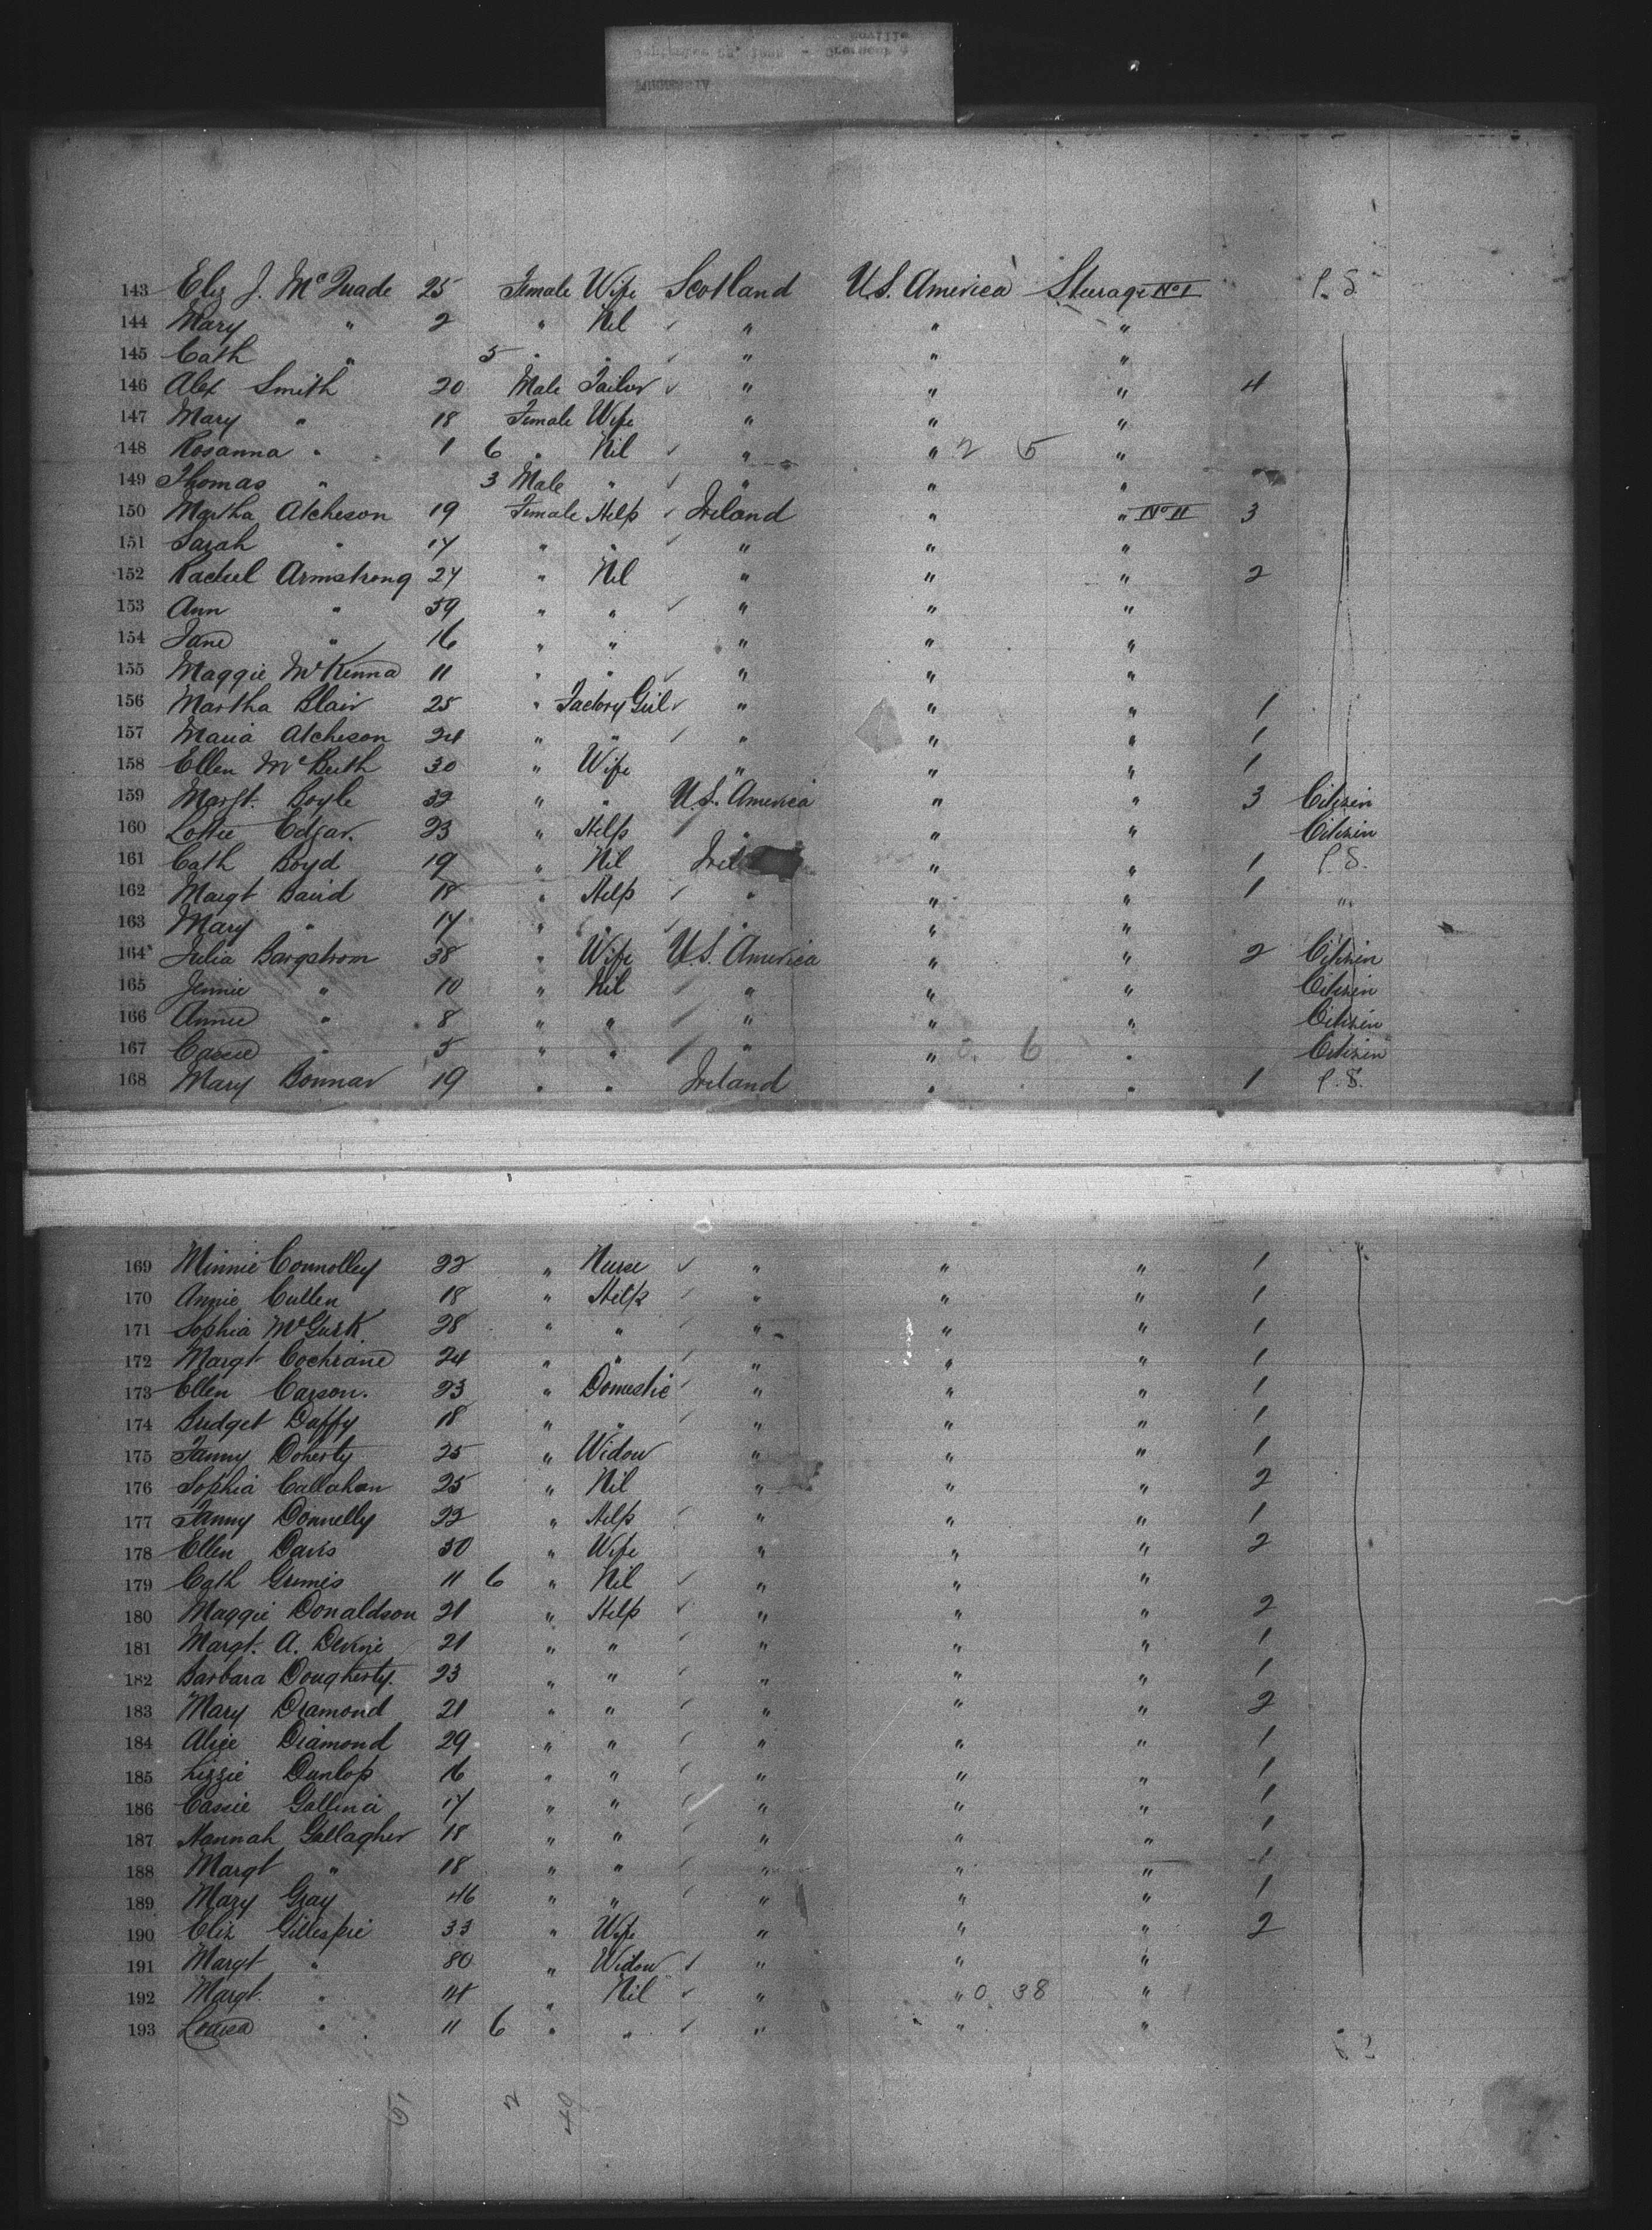 143 Eliz J. McQuade 25 Female Wife Scotland U.S. America Steerage No I P.S.
144 Mary " 2 " Nil ✓ " " "
145 Cath " 5 " " ✓ " " "
146 Alex Smith 20 Male Tailor ✓ " " " 4
147 Mary " 18 Female Wife " " "
148 Rosanna " 1 6 " Nil ✓ " " 2 5 "
149 Thomas " 3 Male " ✓ " " "
150 Martha Atcheson 19 Female Help ✓ Ireland " " No II 3
151 Sarah " 17 " " ✓ " " "
152 Rachel Armstrong 24 " Nil " " " 2
153 Ann " 59 " " ✓ " " "
154 Jane " 16 " " " " "
155 Maggie McKenna 11 " " ✓ " " "
156 Martha Blair 25 " Factory Girl ✓ " " " 1
157 Maria Atcheson 24 " " ✓ " " " 1
158 Ellen McBeth 30 " Wife " " " 1
159 Margt. Boyle 32 " " U.S. America " " 3 Citizen
160 Lottie Edgar. 23 " Help ✓ " " " Citizen
161 Cath Boyd 19 " Nil " " 1 P.S.
162 Margt Baird 18 " Help ✓ " " " 1 "
163 Mary " 14 " " ✓ " " "
164 Julia Bargstrom 38 " Wife U.S. America " " 2 Citizen
165 Jennie " 10 " Nil ✓ " " " Citizen
166 Annie " 8 " " ✓ " " " Citizen
167 Cassie " 5 " " ✓ " " 0. 6 " Citizen
168 Mary Bonnar 19 " " Ireland " " 1 P.S.
169 Minnie Connolley 22 " Nurse ✓ " " " 1
170 Annie Cullen 18 " Help ✓ " " " 1
171 Sophia McGurk 28 " " ✓ " " " 1
172 Margt Cochrane 24 " " ✓ " " " 1
173 Ellen Carson. 23 " Domestic ✓ " " " 1
174 Bridget Daffy 18 " " ✓ " " " 1
175 Fanny Doherty 25 " Widow " " " 1
176 Sophia Callahan 25 " Nil " " " 2
177 Fanny Donnelly 22 " Help ✓ " " " 1
178 Ellen Davis 30 " Wife " " " 2
179 Cath Grimes 11 6 " Nil ✓ " " "
180 Maggie Donaldson 21 " Help ✓ " " " 2
181 Margt. A. Devine 21 " " ✓ " " " 1
182 Barbara Dougherty. 23 " " ✓ " " " 1
183 Mary Diamond 21 " " ✓ " " " 2
184 Alice Diamond 29 " " ✓ " " " 1
185 Lizzie Dunlop 16 " " ✓ " " " 1
186 Cassie 17 " " ✓ " " " 1
187 Hannah Gallagher 18 " " ✓ " " " 1
188 Margt " 18 " " ✓ " " " 1
189 Mary Gray 46 " " ✓ " " " 1
190 Eliz Gillespie 33 " Wife " " " 2
191 Margt " 80 " Widow ✓ " " "
192 Margt. " " Nil ✓ " " 0. 38 "
193 Louisa " 11 6 " " ✓ " " "